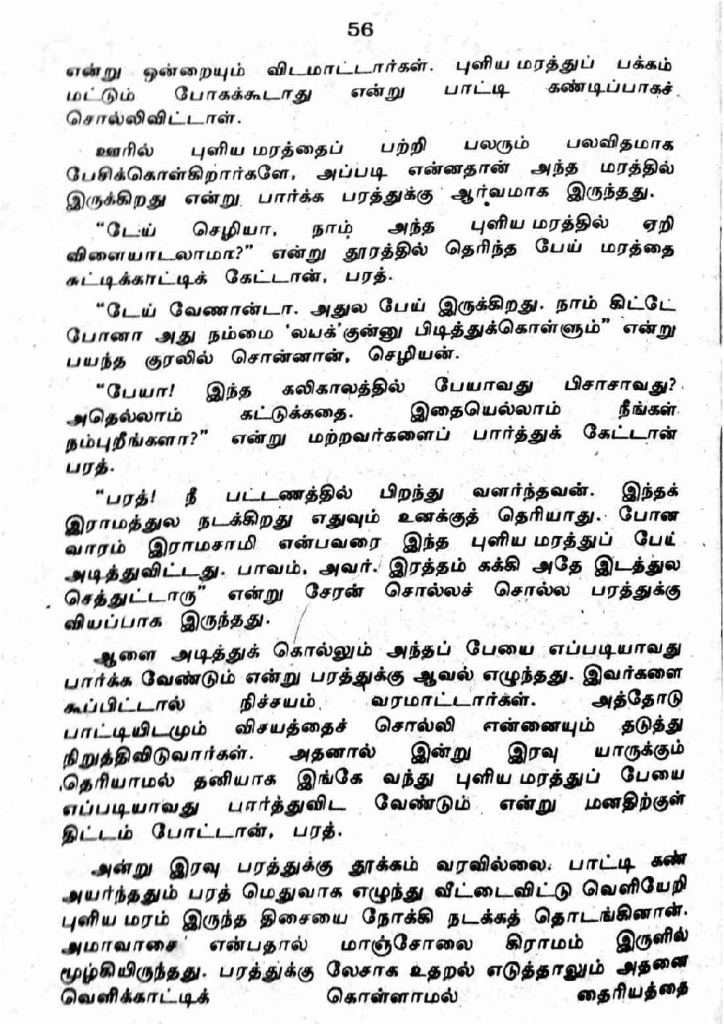 56
என்று ஒன்றையும் விடமாட்டார்கள். புளிய மரத்துப் பக்கம்
மட்டும் போகக்கூடாது என்று பாட்டி கண்டிப்பாகச்
சொல்லிவிட்டாள்.
ஊரில் புளிய மரத்தைப் பற்றி பலரும் பலவிதமாக
பேசிக்கொள்கிறார்களே, அப்படி என்னதான் அந்த மரத்தில்
இருக்கிறது என்று பார்க்க பரத்துக்கு ஆர்வமாக இருந்தது.
“டேய் செழியா, நாம் அந்த புளிய மரத்தில் ஏறி
விளையாடலாமா?” என்று தூரத்தில் தெரிந்த பேய் மரத்தை
சுட்டிக்காட்டிக் கேட்டான், பரத்.
“டேய் வேணான்டா. அதுல பேய் இருக்கிறது. நாம் கிட்டே
போனா அது நம்மை ‘லபக்’குன்னு பிடித்துக்கொள்ளும்” என்று
பயந்த குரலில் சொன்னான், செழியன்.
“பேயா! இந்த கலிகாலத்தில் பேயாவது பிசாசாவது?
அதெல்லாம் கட்டுக்கதை. இதையெல்லாம் நீங்கள்
நம்புறீங்களா?” என்று மற்றவர்களைப் பார்த்துக் கேட்டான்
பரத்.
“பரத்! நீ பட்டணத்தில் பிறந்து வளர்ந்தவன். இந்தக்
இராமத்துல நடக்கிறது எதுவும் உனக்குத் தெரியாது. போன
வாரம் இராமசாமி என்பவரை இந்த புளிய மரத்துப் பேய்
அடித்துவிட்டது. பாவம், அவர். இரத்தம் கக்கி அதே இடத்துல
செத்துட்டாரு” என்று சேரன் சொல்லச் சொல்ல பரத்துக்கு
வியப்பாக இருந்தது.
ஆளை அடித்துக் கொல்லும் அந்தப் பேயை எப்படியாவது
பார்க்க வேண்டும் என்று பரத்துக்கு ஆவல் எழுந்தது. இவர்களை
கூப்பிட்டால் நிச்சயம் வரமாட்டார்கள். அத்தோடு
பாட்டியிடமும் விசயத்தைச் சொல்லி என்னையும் தடுத்து
நிறுத்திவிடுவார்கள். அதனால் இன்று இரவு யாருக்கும்
தெரியாமல் தனியாக இங்கே வந்து புளிய மரத்துப் பேயை
எப்படியாவது பார்த்துவிட வேண்டும் என்று மனதிற்குள்
திட்டம் போட்டான், பரத்.
அன்று இரவு பரத்துக்கு தூக்கம் வரவில்லை. பாட்டி கண்
அயர்ந்ததும் பரத் மெதுவாக எழுந்து வீட்டைவிட்டு வெளியேறி
புளிய மரம் இருந்த திசையை நோக்கி நடக்கத் தொடங்கினான்.
அமாவாசை என்பதால் மாஞ்சோலை கிராமம் இருளில்
மூழ்கியிருந்தது. பரத்துக்கு லேசாக உதறல் எடுத்தாலும் அதனை
வெளிக்காட்டிக் கொள்ளாமல் தைரியத்தை